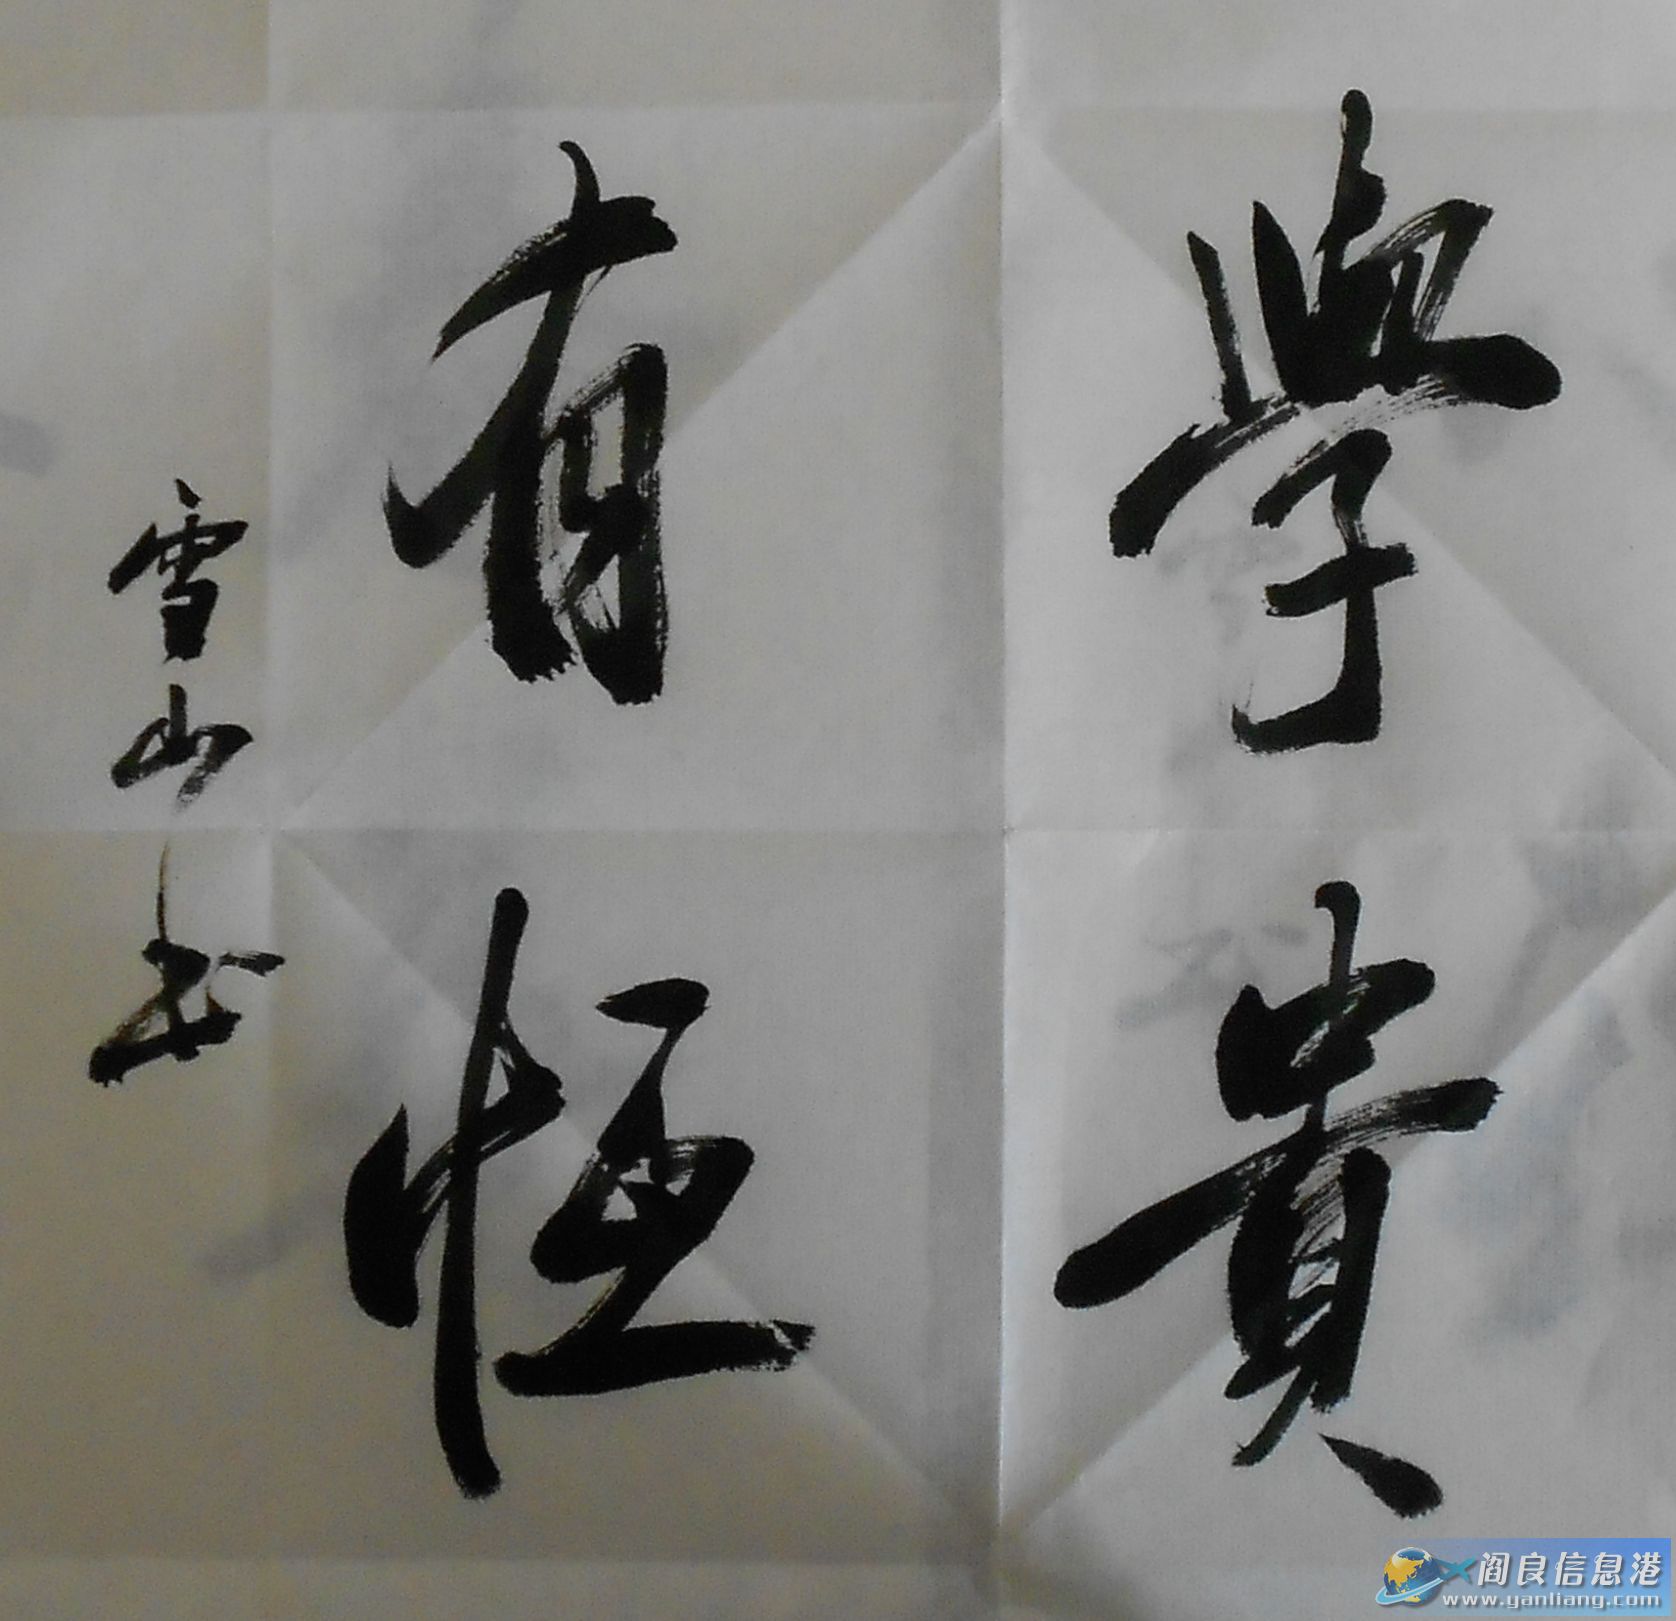 學貴
有恒
雪山书
阎良信息港
www.yanliang.com